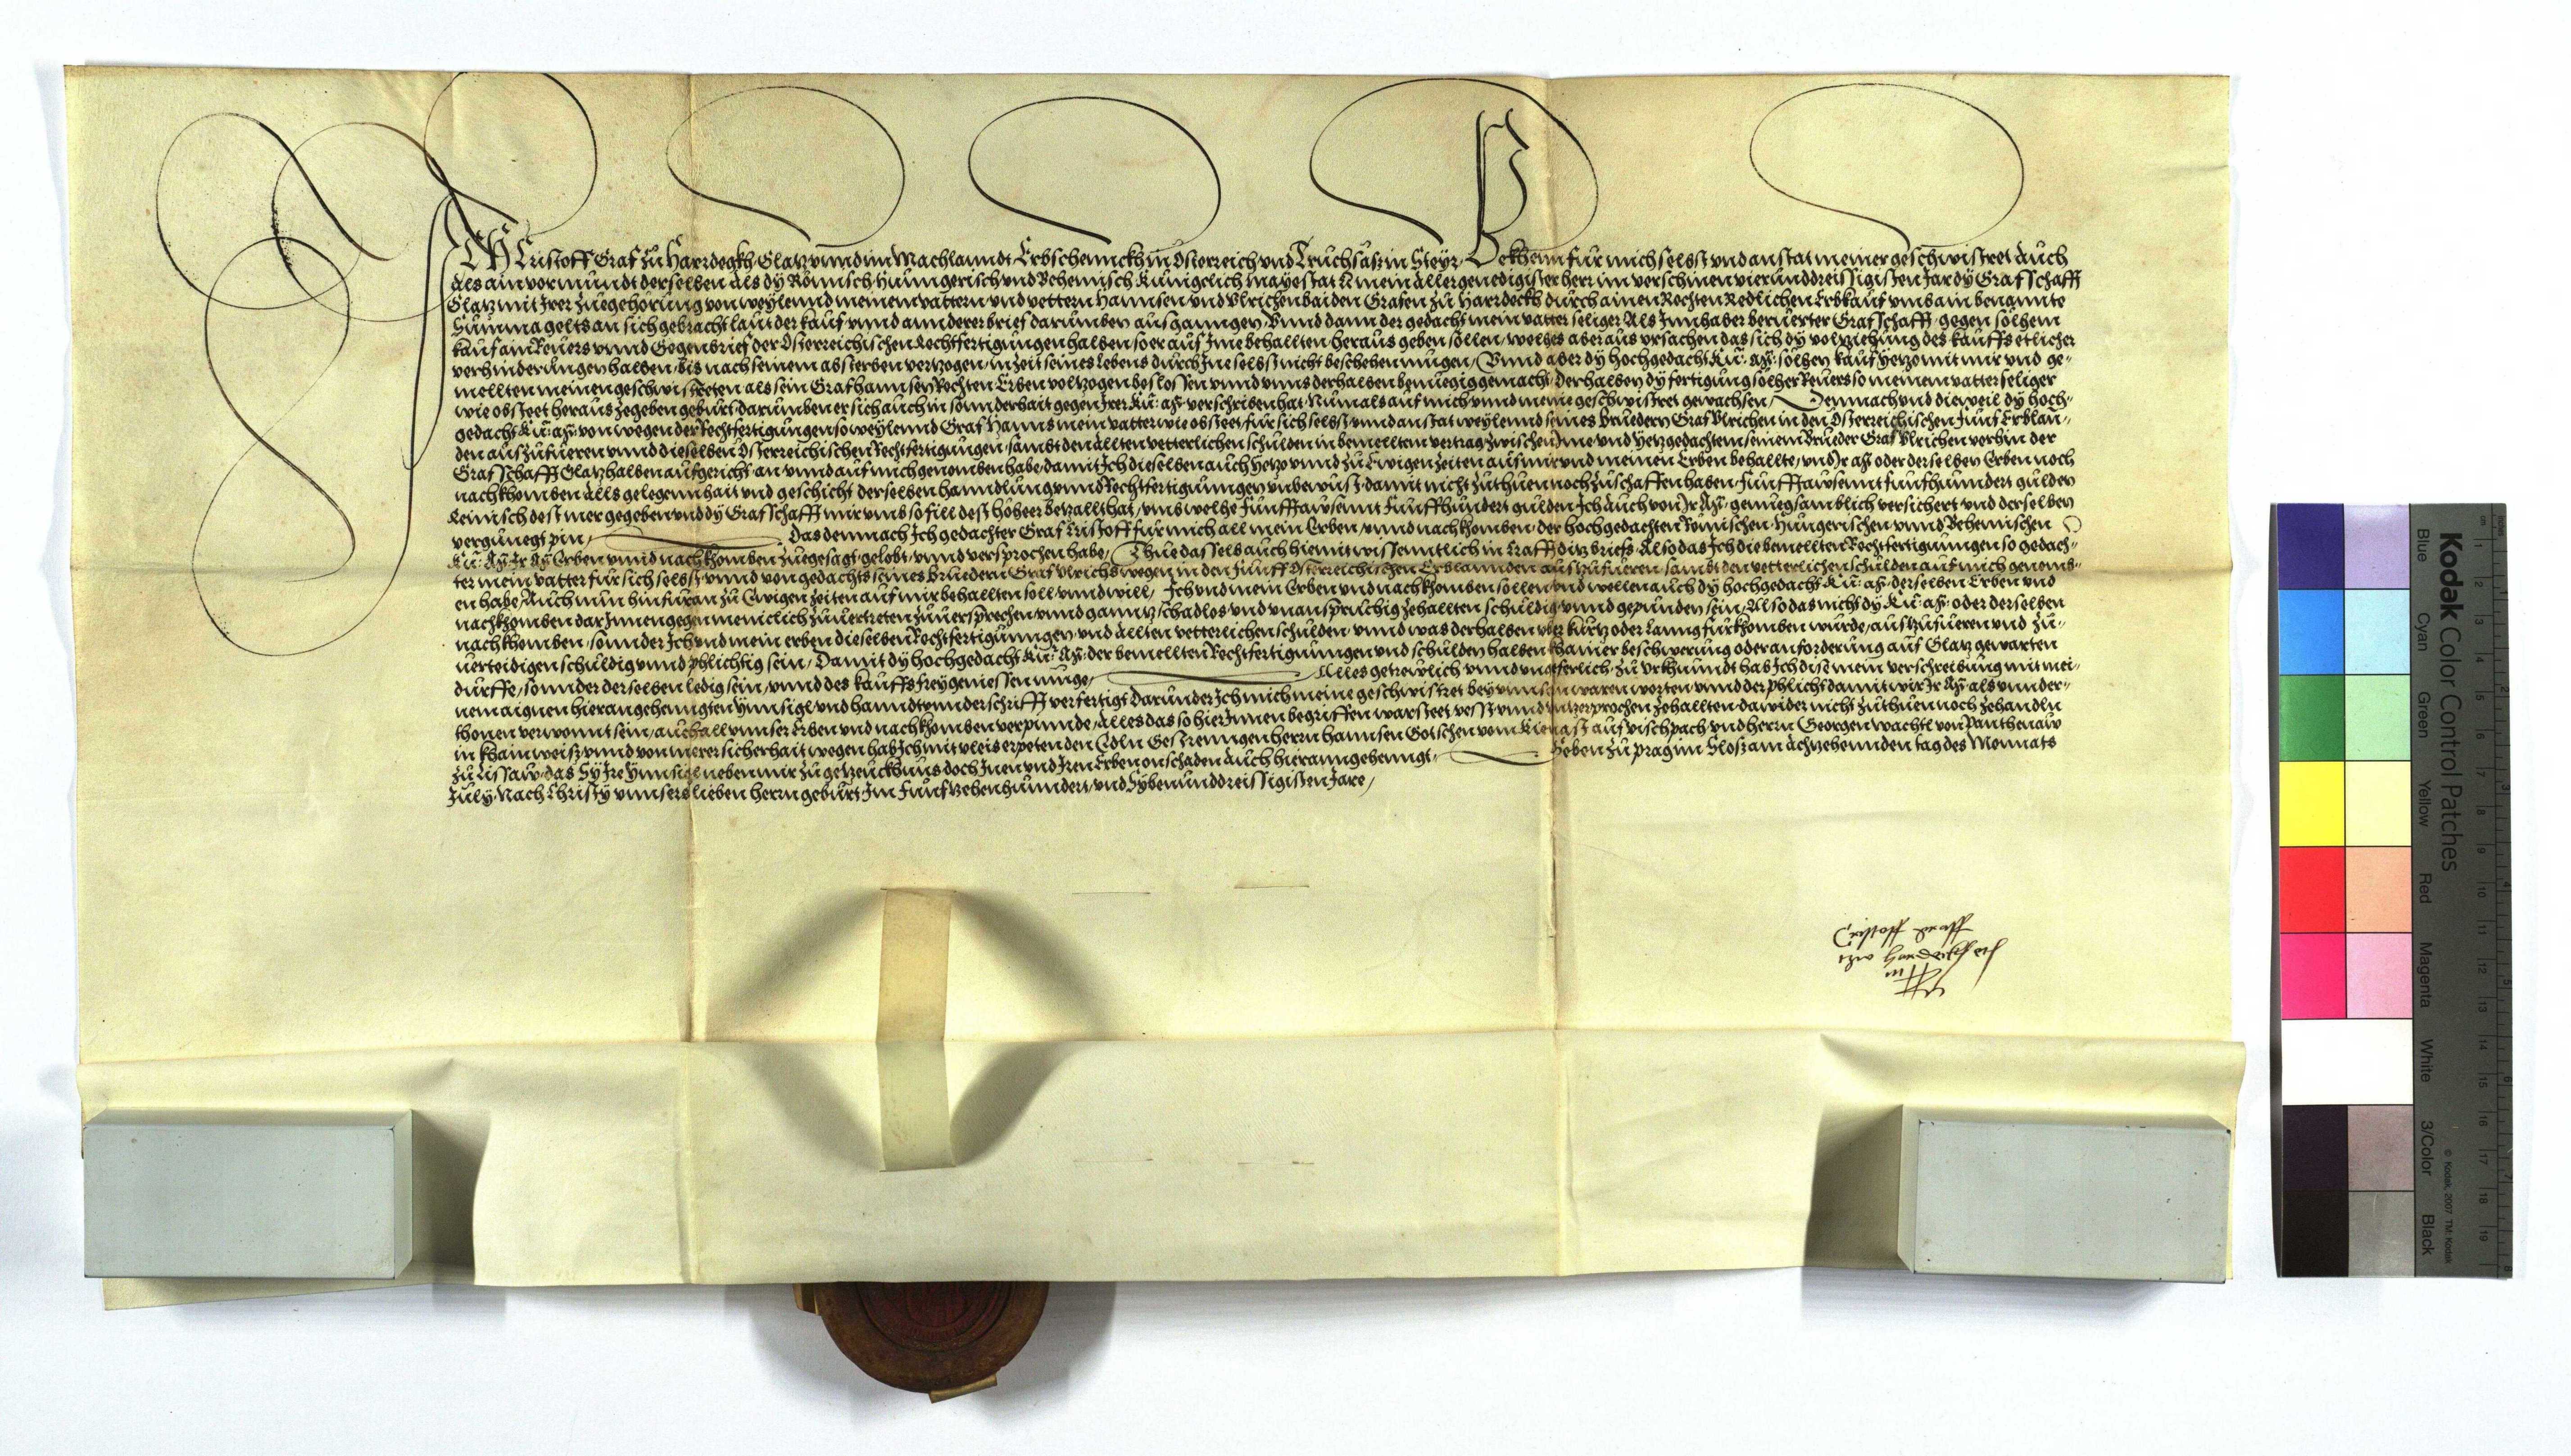 ICH Cristoff Graf zu Harrdegkh Glatz vnnd im Machlanndt Erbschennckh in Osterreich vnd Truchsäss in Steyr, Bekhenn fur mich selbst vnd anstat meiner geschwistret auch
als ain vormundt derselben als dy Römisch Hunngerisch vnd Behemisch Kunngclich mayestat &c mein allergenedigister herr im verschinen vierunddreissigisten Jar dy Grafschafft
Glatz mit Irer zuegehörung von weylennd meinem vattern vnd vettern Hannsen vnd Vlrichen baiden Grafen zu Harrdeckh durch ainen Rechten Redlichen Erbkauf vmb ain benannte
Summa gelts an sich gebracht laut der kauf vnnd annderer brief darumben ausganngen, Vnnd dann der gedacht mein vatter seliger Als Innhaber berüerter Grafschafft gegen solhem
kauf ain Reuers vnnd Gegenbrief der Osterreichischen Rechtfertigungen halben so er auf Ime behallten heraus geben sollen, welhes aber aus vrsachen das sich dy volziehung des kauffs etlicher
verhinderungen halben bis nach seinem absterben vertzogen, in Zeit seines lebens durch Ine selbst nicht beschehen mügen, Vnnd aber dy hochgedacht Kü: Mt: solhen kauf yetzo mit mir vnd ge-
mellten meinen geschwistreten als sein Graf hannsen Rechten Erben voltzogen beslossen vnnd vnns derhalben benüegig gemacht, derhalben dy fertigung solher Reuers so meinem vatter seliger
wie obsteet heraus zegeben gebürt darumben er sich auch in sonnderhait gegen Irer Kü: Mt: verschriben hat Nun als auf mich vnnd meine geschwistret gewachsen, Demnach vnd dieweil dy hoch-
gedacht Kü: Mt: von wegen der Rechtfertigungen so weylennd Graf Hanns mein vatter wie obsteet, für sich selbst vnnd anstat weylennd seines bruedern Graf Vlrichen in den Osterreichischen Fünf Erblan-
den auszufüeren vnnd dieselben Osterreichischen Rechtfertigungen, sambt den allten vetterlichen schulden in bemelltem vertrag zwischen Ime vnd yetzgedachtem seinem brueder Graf Vlrichen verhin der
Grafschafft Glatz halben aufgericht an vnnd auf mich genomben habe, damit Ich dieselben auch yetzo vnnd zu Ewigen Zeiten auf mir vnd meinen Erben behallte, vnd Ir Mt oder derselben Erben noch
nachkhomben alls gelegennhait vnd geschicht derselben hanndlung vnnd Rechtfertigunngen vnbewust, damit nicht zuthuen noch zuschaffen haben, Fünfftawsennt fünfhundert gulden
Reinisch dest mer gegeben vnd dy Grafschafft mir vmb so fill dest höher betzallt hat, vmb welhe Fünfftawsennt Fünffhundert gulden Ich auch von Ir Mt: genuegsamblich versichert vnd derselben
vergnuegt pin, Das demnach Ich gedachter Graf Cristoff für mich all mein Erben vnnd nachkhomben, der hochgedachten Römischen, Hungerischen vnnd Behemischen
Kü: Mt: Ir Mt Erben vnnd nachkhomben zuegesagt gelobt vnnd versprochen habe, Thue dasselb auch hiemit wissenntlich in krafft ditz briefs, Also das Ich die bemellten Rechtfertigunngen so gedach-
ter mein vatter für sich selbst vnnd von gedachts seines bruedern Graf Vlrichs wegen in den Fünff Osterreichischen Erblannden auszufüeren sambt den vetterlichen schulden auf mich genomb-
en habe, Auch nun hinfüran zu Ewigen Zeiten auf mir behallten soll vnnd will, Ich vnd mein Erben vnd nachkhomben sollen vnd wellen auch dy hochgedacht Kü: Mt: derselben Erben vnd
nachkhomben dar Innen gegen meniclich zuuertreten zuuersprechen vnnd ganntz schadlos vnd vnansprüchig zehallten schuldig vnnd gepunden sein, Also das nicht dy Kü: Mt: oder derselben
nachkhomben, sonnder Ich vnd mein erben dieselben Rechtfertigunngen vnd allten vetterlichen schulden vnnd was derhalben vber kurtz oder lanng fürkhomben wurde, auszufüeren vnd zu-
uerteidigen schuldig vnnd phlichtig sein, Damit dy hochgedacht Kü: Mt: der bemellten Rechtfertigunngen vnd schulden halben khainer beschwerung oder anforderung auf Glatz gewarten
dürffe, sonnder derselben ledig sein, vnnd des kauffs frey geniessen müge, Alles getrewlich vnnd vngeferlich, zu vrkhunndt hab Ich dise mein verschreibung mit mei-
nem aignen hieran gehenngten Innsigl vnd hanndtvnnderschrifft verfertigt Darunder Ich mich meine geschwistret bey vnnsern waren worten vnnd der phlicht damit wir Ir Mt: als vnnder-
thonen verwonnt sein, auch all vnnser Erben vnd nachkhomben verpinnde, Alles das so hier Innen begriffen war steet vesst vnnd vnzerprochen zehallten dawider nicht zuthuen noch zehandln
in khain weis, vnnd von merer sicherhait wegen hab Ich mit vleis erpeten den Edln Gestrenngen herrn hannsen Gotschen vom Kienast auf vischpach vnd herrn Georgen Wachtl von Panthenaw
zu Zissaw, das Sy Ire Innsigl neben mir zu getzeuckhnus doch Inen vnd Iren Erben on schaden auch hieranngehenngt, Geben zu Prag im Slos, am Achzehennden tag des Monnats
July, Nach Christy vnnsers lieben herrn geburt Im Fünfzehenhundert, vnd Sybenunddreissigisten Jare,
Kodak Color Control Patches
Blue Cyan Green Yellow Red Magenta White 3/Color Black
© Kodak, 2007 TM: Kodak
cm 1 2 3 4 5 6 7 8 9 10 11 12 13 14 15 16 17 18 19